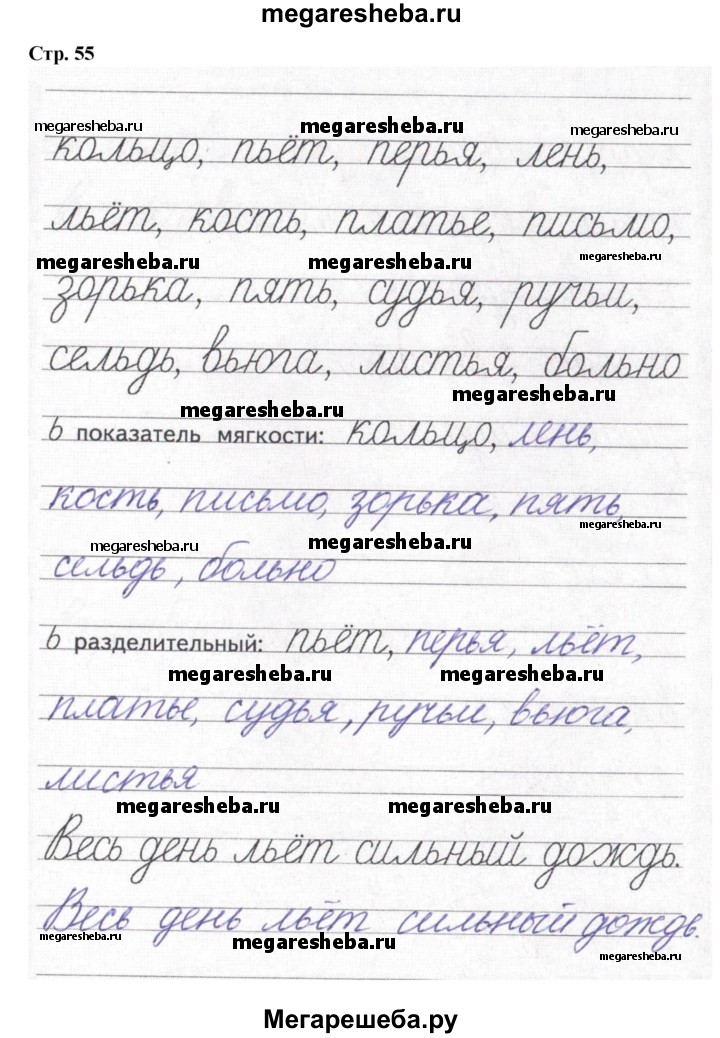 megaresheba.ru
Стр. 55
megaresheba.ru megaresheba.ru megaresheba.ru
кольцо, пьёт, перья, лень,
льёт, кость, платье, письмо,
megaresheba.ru megaresheba.ru megaresheba.ru
зорька, пять, судья, ручьи,
сельдь, вьюга, листья, больно
megaresheba.ru
megaresheba.ru
ь показатель мягкости: кольцо, лень,
кость, письмо, зорька, пять,
megaresheba.ru
megaresheba.ru megaresheba.ru
сельдь, больно
ь разделительный: пьёт, перья, льёт,
megaresheba.ru megaresheba.ru
платье, судья, ручьи, вьюга,
листья
megaresheba.ru megaresheba.ru
Весь день льёт сильный дождь.
Весь день льёт сильный дождь.
megaresheba.ru megaresheba.ru megaresheba.ru
Мегарешеба.ру